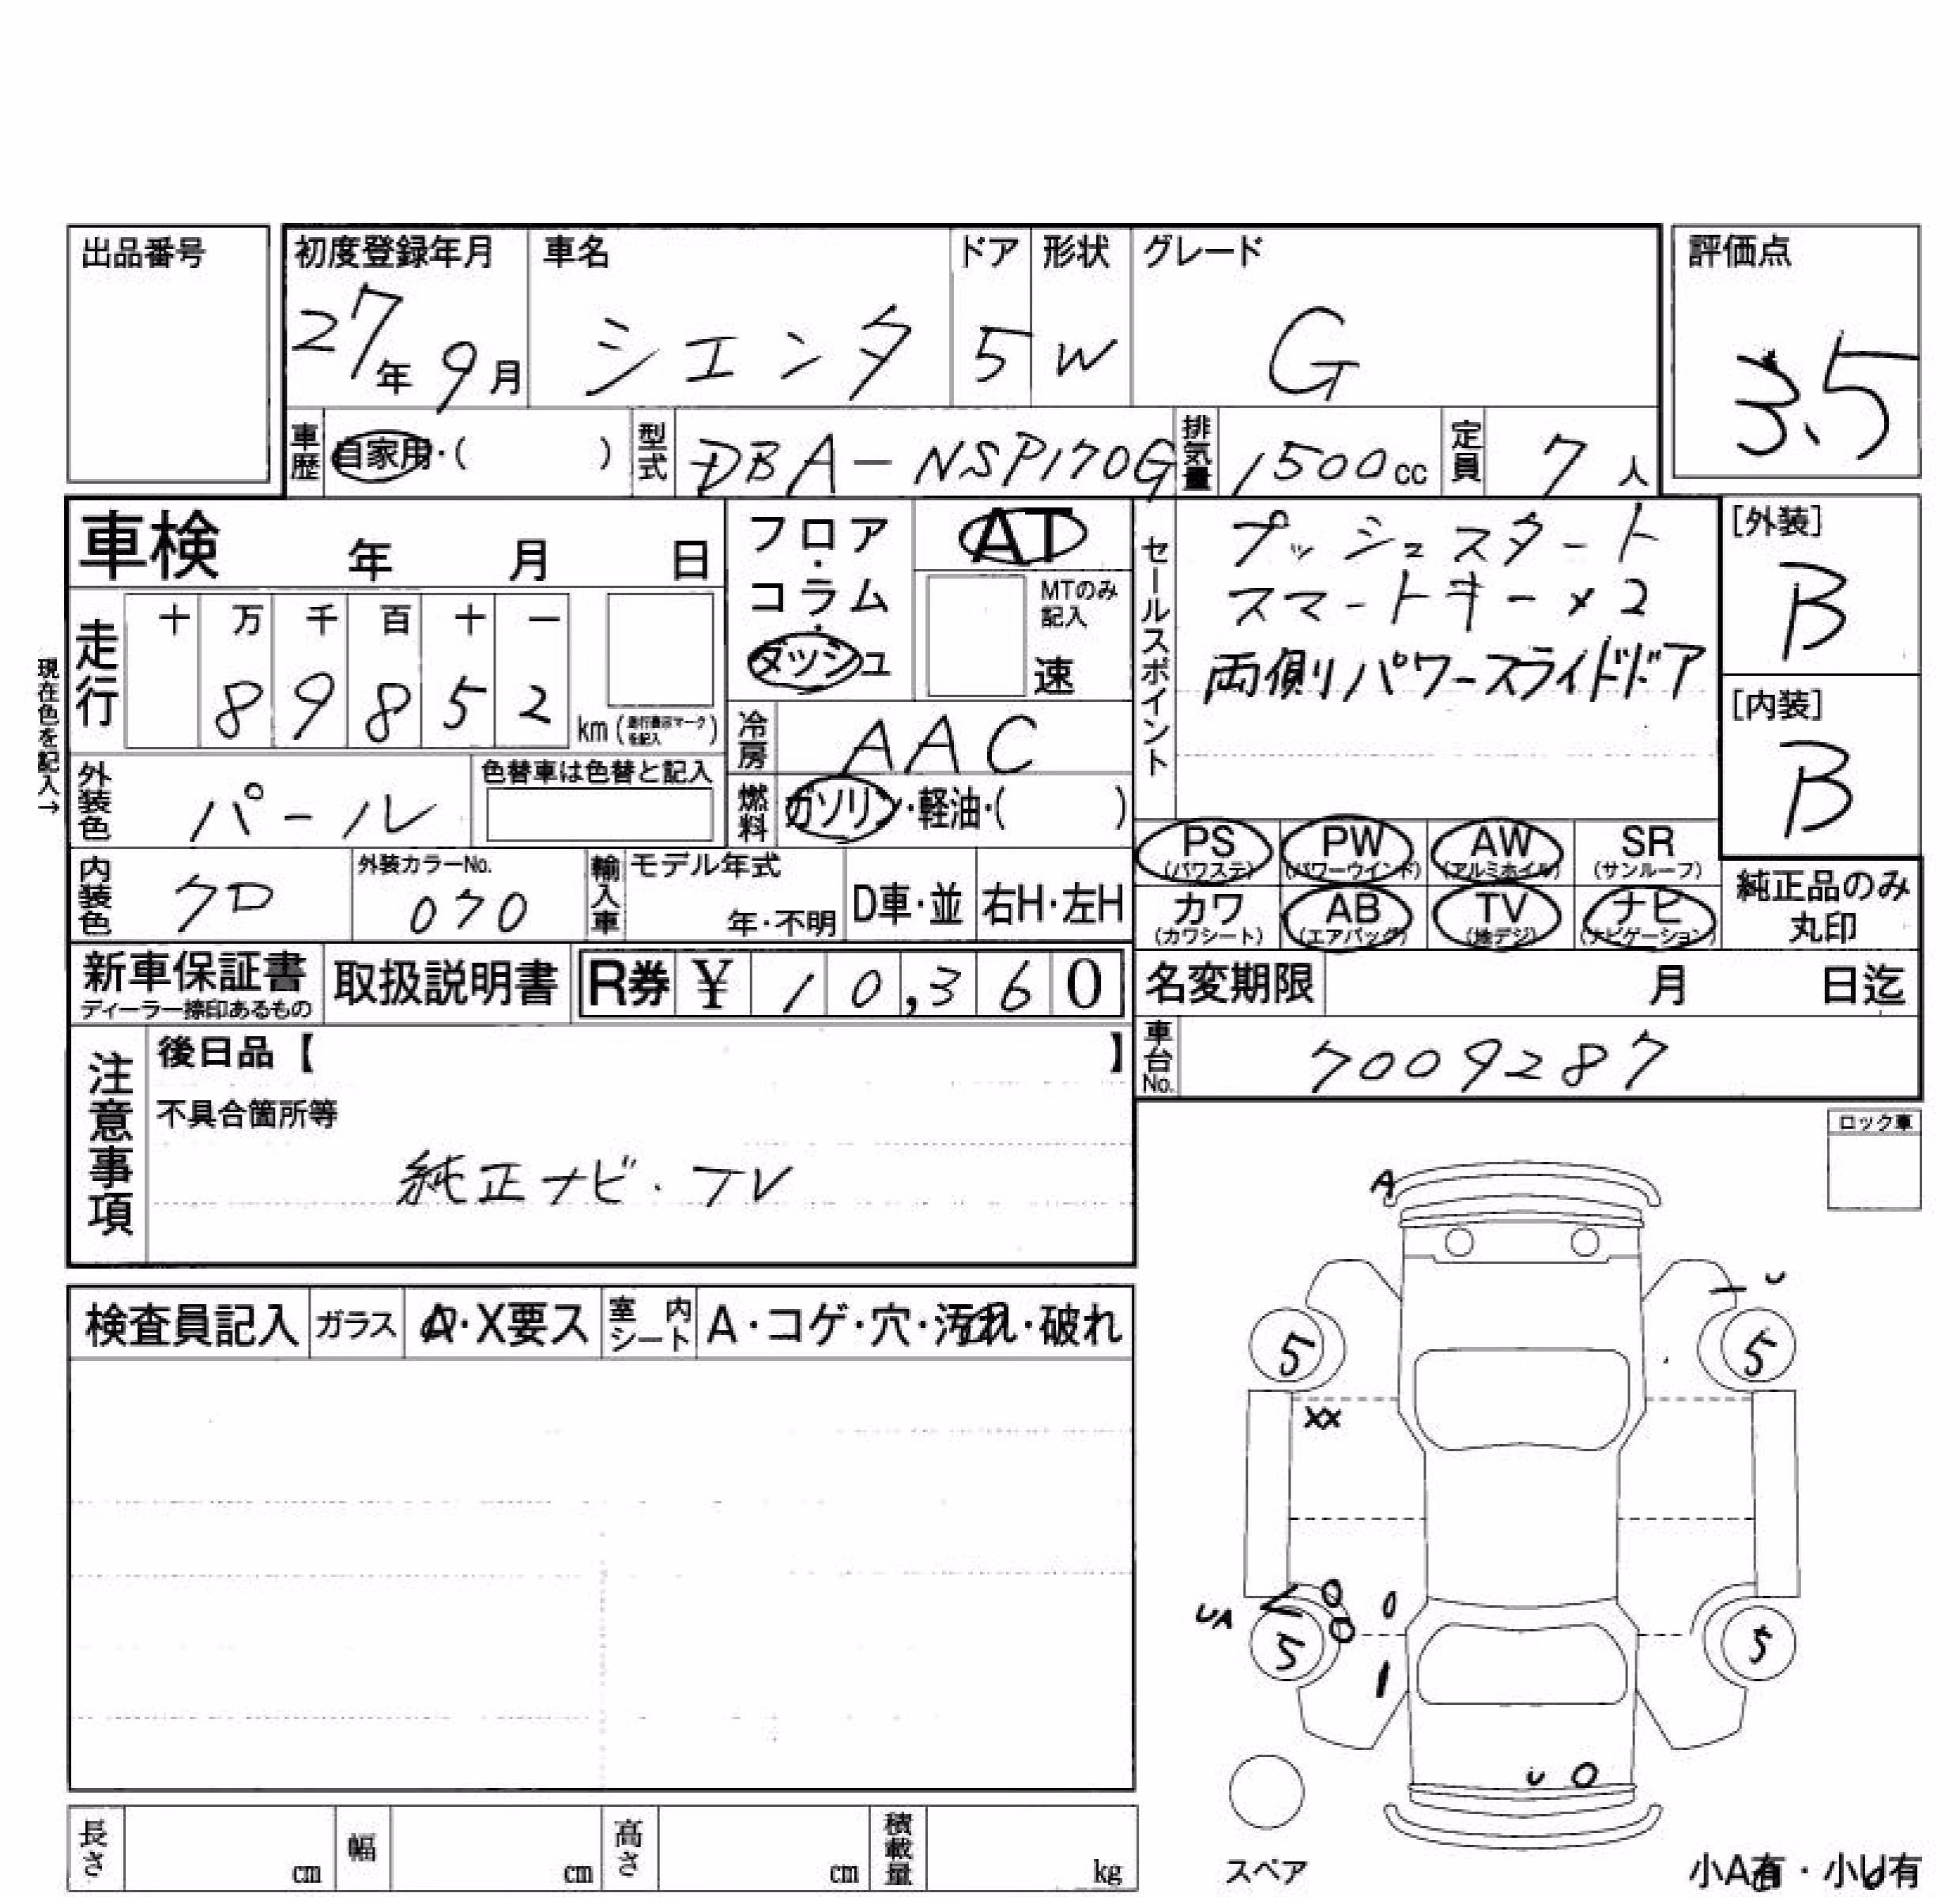 出品番号
初度登録年月 車名 ドア 形状 グレード 評価点
27年 9月 シエンタ 5 W G 3.5
車歴 自家用・( ) 型式 DBA-NSP170G 排気量 1500cc 定員 7人
車検 年 月 日
フロア・コラム・ダッシュ
AT
MTのみ記入
速
セールスポイント
プッシュスタート
スマートキー×2
両側パワースライドドア
[外装]
B
[内装]
B
現在色を記入→
走行 十 万 千 百 十 一
8 9 8 5 2 km (走行表示マークを記入)
冷房 AAC
外装色 パール 色替車は色替と記入
燃料 ガソリン・軽油・( )
PS (パワステ) PW (パワーウインド) AW (アルミホイル) SR (サンルーフ)
カワ (カワシート) AB (エアバッグ) TV (地デジ) ナビ (ナビゲーション)
純正品のみ
丸印
内装色 クロ 外装カラーNo. 070 輸入車 モデル年式 年・不明 D車・並 右H・左H
新車保証書 ディーラー捺印あるもの 取扱説明書 R券 ¥ 10,360
名変期限 月 日迄
車台No. 7009287
注意事項
後日品【 】
不具合箇所等
純正ナビ・TV
ロック車
検査員記入 ガラス A・X要ス 室内シート A・コゲ・穴・汚れ・破れ
A
5 5
XX
UA
5 5
スペア
小A有・小U有
長さ cm 幅 cm 高さ cm 積載量 kg